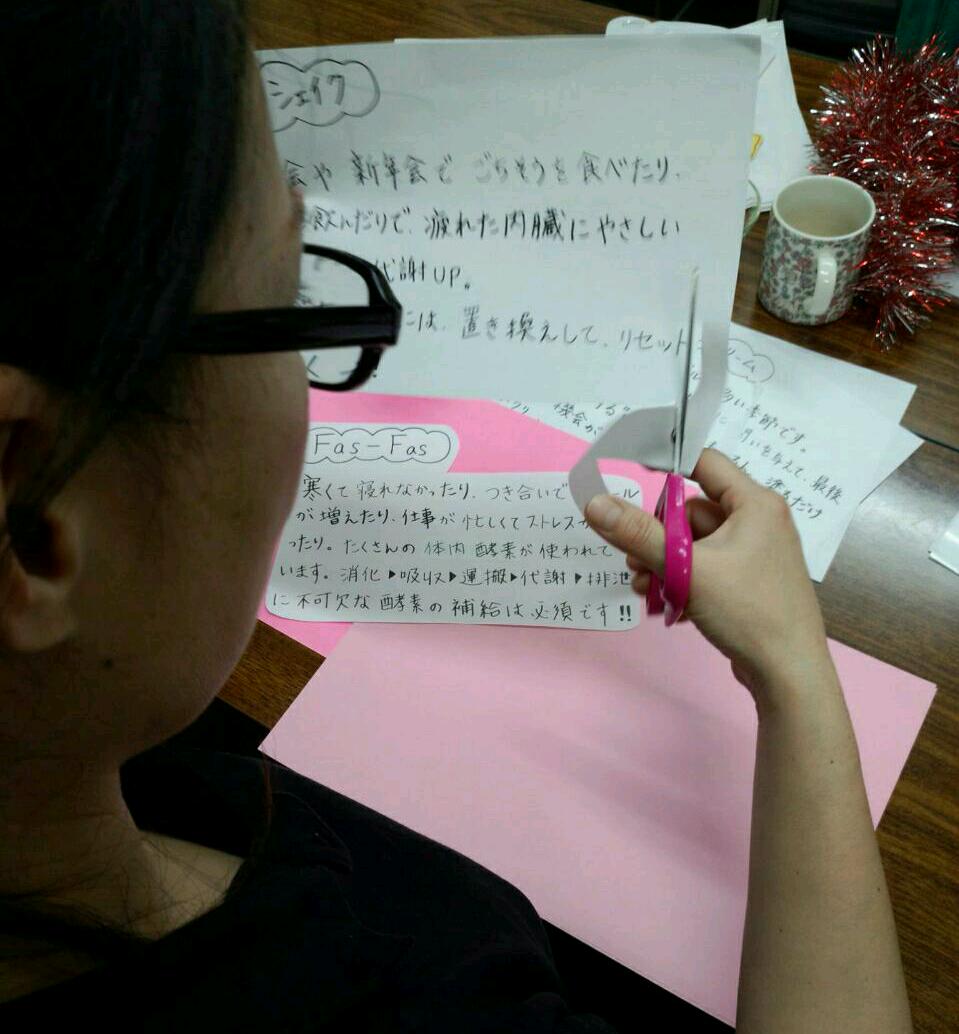 シェイク
会や 新年会で ごちそうを 食べたり、
飲んだりで、疲れた内臓にやさしい
代謝UP。
には、置き換えして、リセット
Fas-Fas
寒くて 寝れなかったり、つき合いで ール
が 増えたり、仕事が 忙しくて ストレスが
ったり。たくさんの 体内 酵素が 使われて
います。消化▶吸収▶運搬▶代謝▶排泄
に 不可欠な 酵素の 補給は 必須です!!
機会が
ーム
多い季節です。
潤いを与えて、最後
塗るだけ